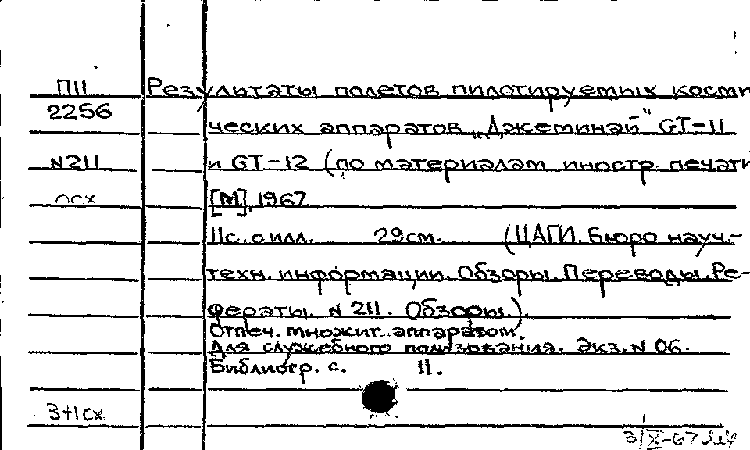 П11 Результаты полетов пилотируемых косми
2256
ческих аппаратов „Джеминай" GT-11
N211 и GT-12 (по материалам иностр. печати
осх [М], 1967
11с. с илл. 29см. (ЦАГИ. Бюро науч.-
техн. информации. Обзоры. Переводы. Ре-
фераты. N 211. Обзоры.)
Отпеч. множит. аппаратом.
Для служебного пользования. Экз. N 06.
Библиогр. с. 11.
3+1сх
3/X-67